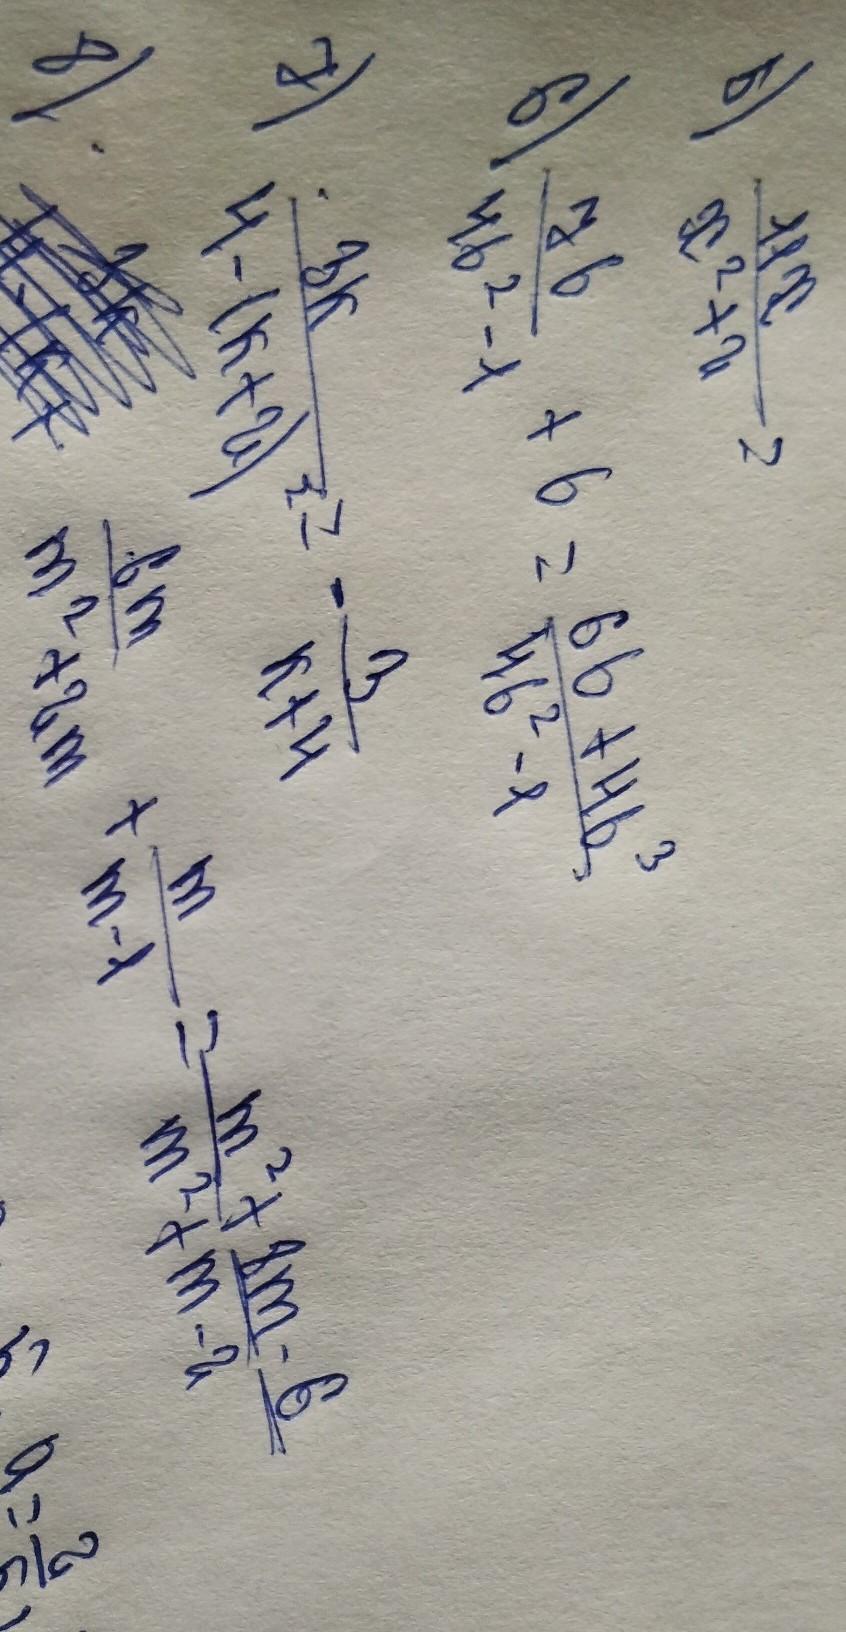 5)
6) 7b/(4b²-1) + b = (6b+4b³)/(4b²-1)
7) 3k/(4-(k+2)²) = -3/(k+4)
8) 6m/(m²+2m) + m/(m-1) = (m²+8m-6)/(m²+m-2)